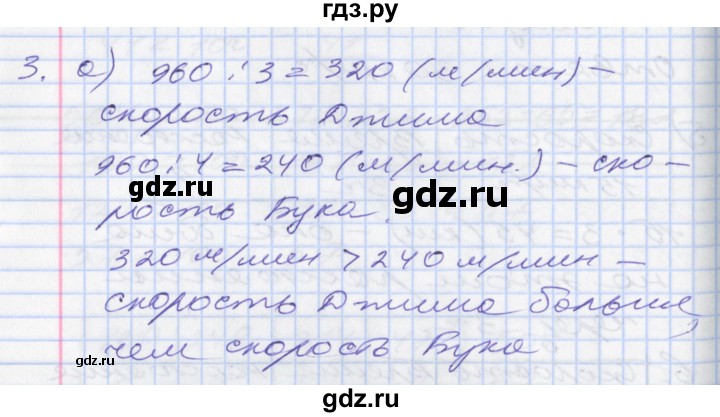 гдз.ру
3. а) 960 : 3 = 320 (м/мин) –
скорость Джима
960 : 4 = 240 (м/мин.) – ско-
gdz.ru
gdz.ru
рость Бука.
320 м/мин > 240 м/мин –
скорость Джима больше,
чем скорость Бука
gdz.ru
gdz.ru